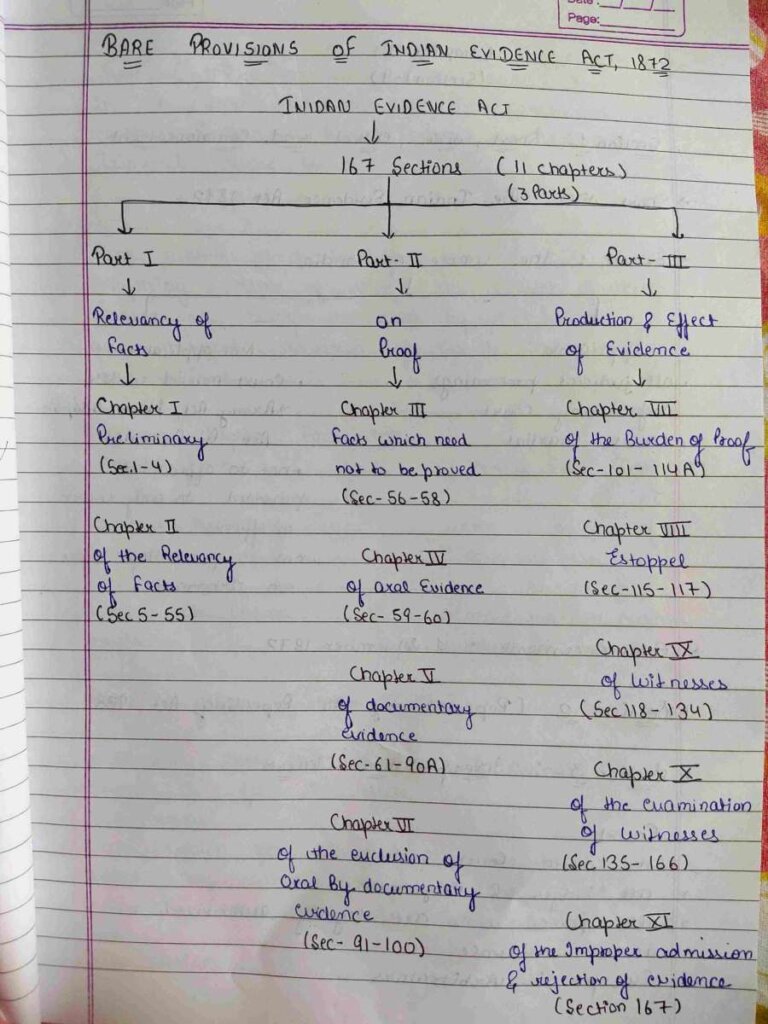 Date:
Page:
BARE PROVISIONS OF INDIAN EVIDENCE ACT, 1872
INIDAN EVIDENCE ACT
167 Sections (11 Chapters)
(3 Parts)
Part I
Relevancy of
facts
Chapter I
Preliminary
(Sec.1-4)
Chapter II
of the Relevancy
of facts
(Sec 5-55)
Part-II
on
Proof
Chapter III
facts which need
not to be proved
(Sec-56-58)
Chapter IV
of oral Evidence
(Sec-59-60)
Chapter V
of documentary
evidence
(Sec-61-90A)
Chapter VI
of the exclusion of
Oral By documentary
evidence
(Sec-91-100)
Part-III
Production & Effect
of Evidence
Chapter VII
of the Burden of Proof
(Sec-101-114A)
Chapter VIII
Estoppel
(Sec-115-117)
Chapter IX
of Witnesses
(Sec 118-134)
Chapter X
of the examination
of witnesses
(Sec 135-166)
Chapter XI
of the Improper admission
& rejection of evidence
(Section 167)